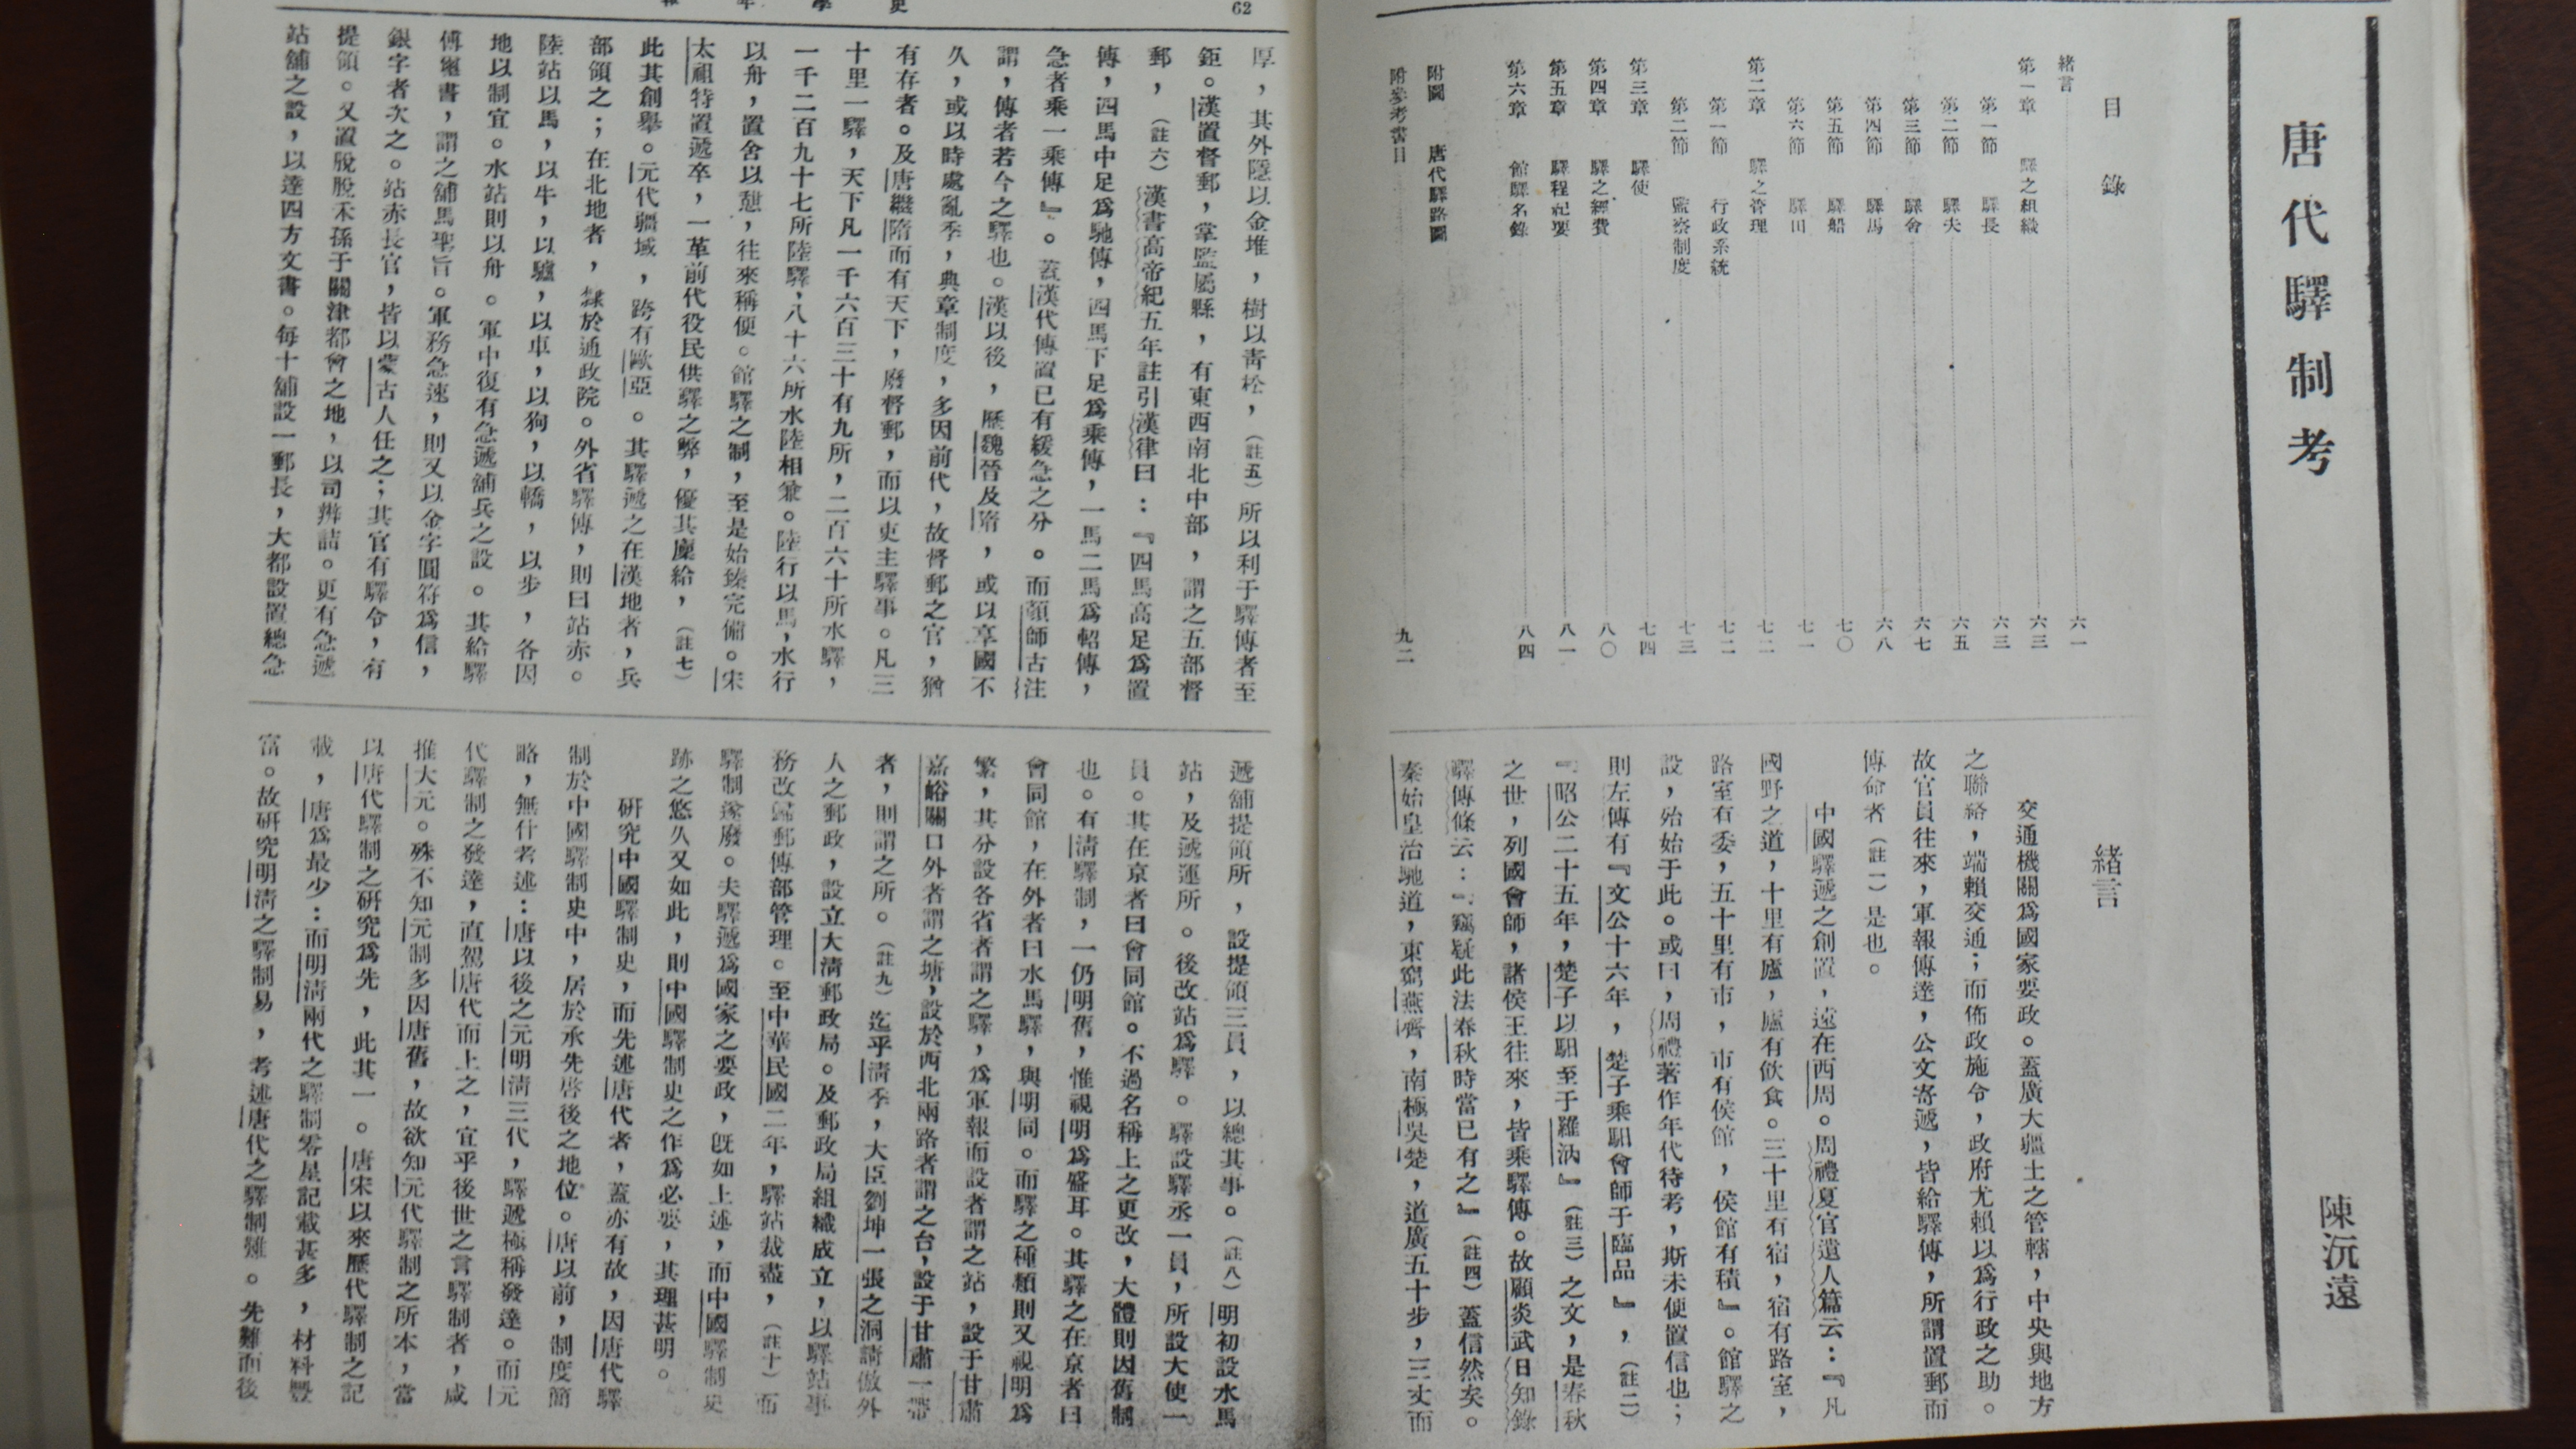 唐代驛制考
陳沅遠
目錄
緒言 六一
第一章 驛之組織 六三
第一節 驛長 六三
第二節 驛夫 六五
第三節 驛舍 六七
第四節 驛馬 六八
第五節 驛船 七〇
第六節 驛田 七一
第二章 驛之管理 七二
第一節 行政系統 七二
第二節 監察制度 七三
第三章 驛使 七四
第四章 驛之經費 八〇
第五章 驛程記要 八一
第六章 館驛名錄 八四
附圖 唐代驛路圖
附參考書目 九二
緒言
交通機關爲國家要政。蓋廣大疆土之管轄,中央與地方
之聯絡,端賴交通;而佈政施令,政府尤賴以爲行政之助。
故官員往來,軍報傳達,公文寄遞,皆給驛傳,所謂置郵而
傳命者(註一)是也。
中國驛遞之創置,遠在西周。周禮夏官遺人篇云:『凡
國野之道,十里有廬,廬有飲食。三十里有宿,宿有路室,
路室有委,五十里有市,市有侯館,侯館有積』。館驛之
設,殆始于此。或曰,周禮著作年代待考,斯未便置信也;
則左傳有『文公十六年,楚子乘馹會師于臨品』,(註二)
『昭公二十五年,楚子以馹至于羅汭』(註三)之文,是春秋
之世,列國會師,諸侯王往來,皆乘驛傳。故顧炎武日知錄
驛傳條云:『竊疑此法春秋時當已有之』(註四)蓋信然矣。
秦始皇治馳道,東窮燕齊,南極吳楚,道廣五十步,三丈而
62
史學年報
厚,其外隱以金堆,樹以靑松,(註五)所以利于驛傳者至
鉅。漢置督郵,掌監屬縣,有東西南北中部,謂之五部督
郵,(註六)漢書高帝紀五年註引漢律曰:『四馬高足爲置
傳,四馬中足爲馳傳,四馬下足爲乘傳,一馬二馬爲軺傳,
急者乘一乘傳』。蓋漢代傳置已有緩急之分。而顏師古注
謂,傳者若今之驛也。漢以後,歷魏晉及隋,或以享國不
久,或以時處亂季,典章制度,多因前代,故督郵之官,猶
有存者。及唐繼隋而有天下,廢督郵,而以吏主驛事。凡三
十里一驛,天下凡一千六百三十有九所,二百六十所水驛,
一千二百九十七所陸驛,八十六所水陸相兼。陸行以馬,水行
以舟,置舍以憩,往來稱便。館驛之制,至是始臻完備。宋
太祖特置遞卒,一革前代役民供驛之弊,優其廩給,(註七)
此其創舉。元代疆域,跨有歐亞。其驛遞之在漢地者,兵
部領之;在北地者,隸於通政院。外省驛傳,則曰站赤。
陸站以馬,以牛,以驢,以車,以狗,以轎,以步,各因
地以制宜。水站則以舟。軍中復有急遞舖兵之設。其給驛
傳璽書,謂之舖馬聖旨。軍務急速,則又以金字圓符爲信,
銀字者次之。站赤長官,皆以蒙古人任之;其官有驛令,有
提領。又置脫脫禾孫于關津都會之地,以司辨詰。更有急遞
站舖之設,以達四方文書。每十舖設一郵長,大都設置總急
遞舖提領所,設提領三員,以總其事。(註八)明初設水馬
站,及遞運所。後改站爲驛。驛設驛丞一員,所設大使一
員。其在京者曰會同館。不過名稱上之更改,大體則因舊制
也。有淸驛制,一仍明舊,惟視明爲盛耳。其驛之在京者曰
會同館,在外者曰水馬驛,與明同。而驛之種類則又視明爲
繁,其分設各省者謂之驛,爲軍報而設者謂之站,設于甘肅
嘉峪關口外者謂之塘,設於西北兩路者謂之台,設于甘肅一帶
者,則謂之所。(註九)迄乎淸季,大臣劉坤一張之洞請倣外
人之郵政,設立大淸郵政局。及郵政局組織成立,以驛站事
務改歸郵傳部管理。至中華民國二年,驛站裁盡,(註十)而
驛制遂廢。夫驛遞爲國家之要政,旣如上述,而中國驛制史
跡之悠久又如此,則中國驛制史之作爲必要,其理甚明。
硏究中國驛制史,而先述唐代者,蓋亦有故,因唐代驛
制於中國驛制史中,居於承先啓後之地位。唐以前,制度簡
略,無什考述:唐以後之元明淸三代,驛遞極稱發達。而元
代驛制之發達,直駕唐代而上之,宜乎後世之言驛制者,咸
推大元。殊不知元制多因唐舊,故欲知元代驛制之所本,當
以唐代驛制之硏究爲先,此其一。唐宋以來歷代驛制之記
載,唐爲最少:而明淸兩代之驛制零星記載甚多,材料豐
富。故硏究明淸之驛制易,考述唐代之驛制難。先難而後